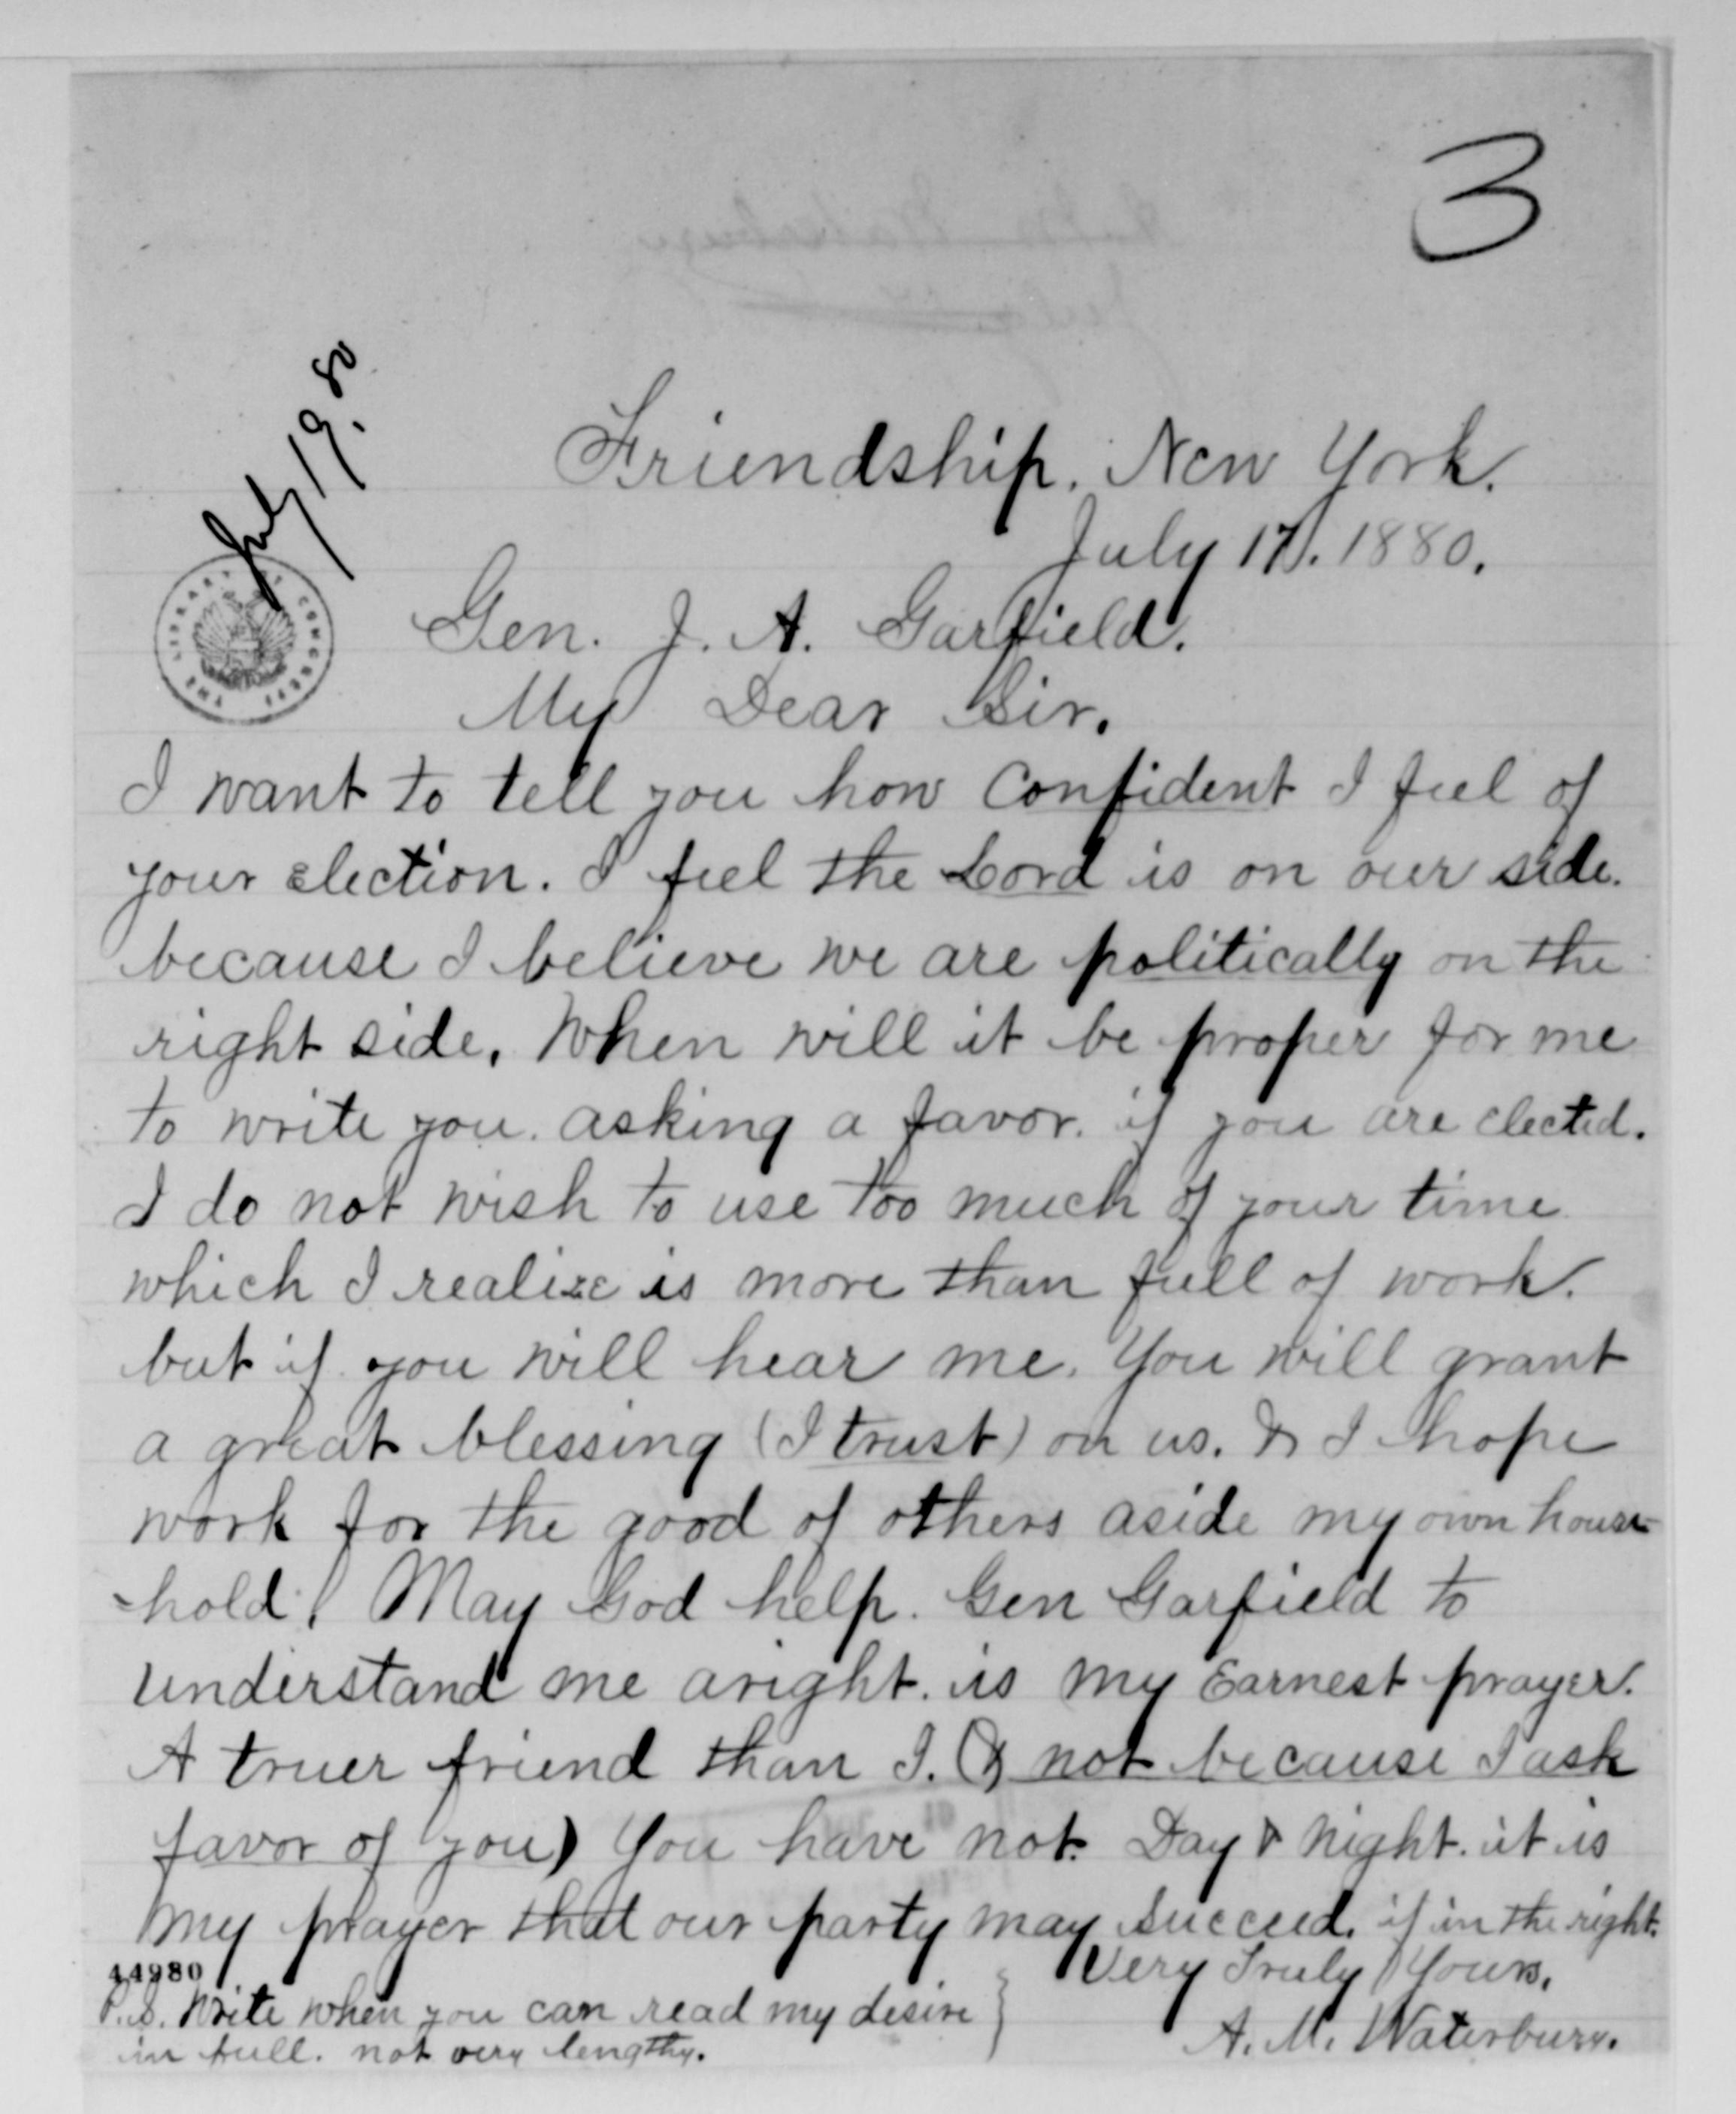 3
July 19. 80
Friendship. New York.
July 17. 1880.
THE LIBRARY OF CONGRESS
Gen. J. A. Garfield.
My Dear Sir.
I want to tell you how Confident I feel of
your election. I feel the Lord is on our side.
because I believe we are politically on the
right side. When will it be proper for me
to write you. asking a favor. if you are elected.
I do not wish to use too much of your time
which I realize is more than full of work.
but if you will hear me. You will grant
a great blessing (I trust) on us. & I hope
work for the good of others aside my own house-
-hold. May God help. Gen Garfield to
understand me aright. is my Earnest prayer.
A truer friend than I. (& not because I ask
favor of you) You have not. Day & Night. it is
my prayer that our party may succeed. if in the right.
Very Truly Yours.
A. M. Waterbury.
44980
P.S. Write when you can read my desire
in full. not very lengthy.